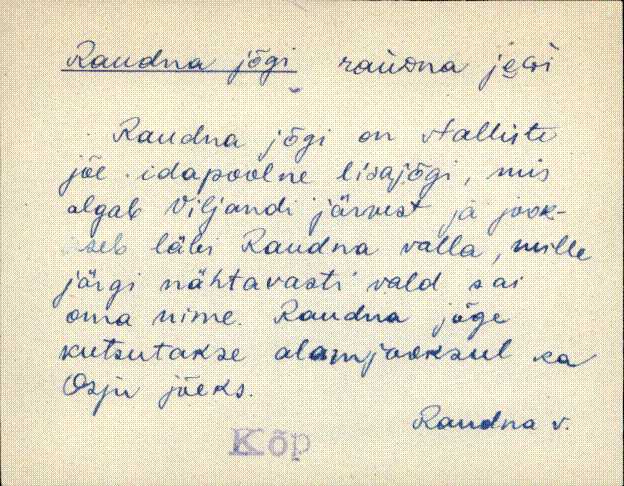 Raudna jõgi raudna jeGi
Raudna jõgi on Halliste
jõe idapoolne lisajõgi, mis
algab Viljandi järvest ja jook-
seb läbi Raudna valla, mille
järgi nähtavasti vald sai
oma nime. Raudna jõge
kutsutakse alamjooksul ka
Osju jõeks.
Raudna v.
Kõp